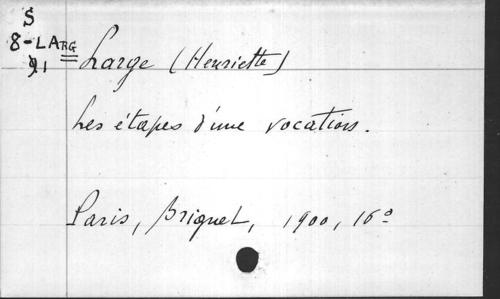 S
8-LARG
91
Large (Henriette)
Les étapes d'une vocation.
Paris, Briquet, 1900, 16º